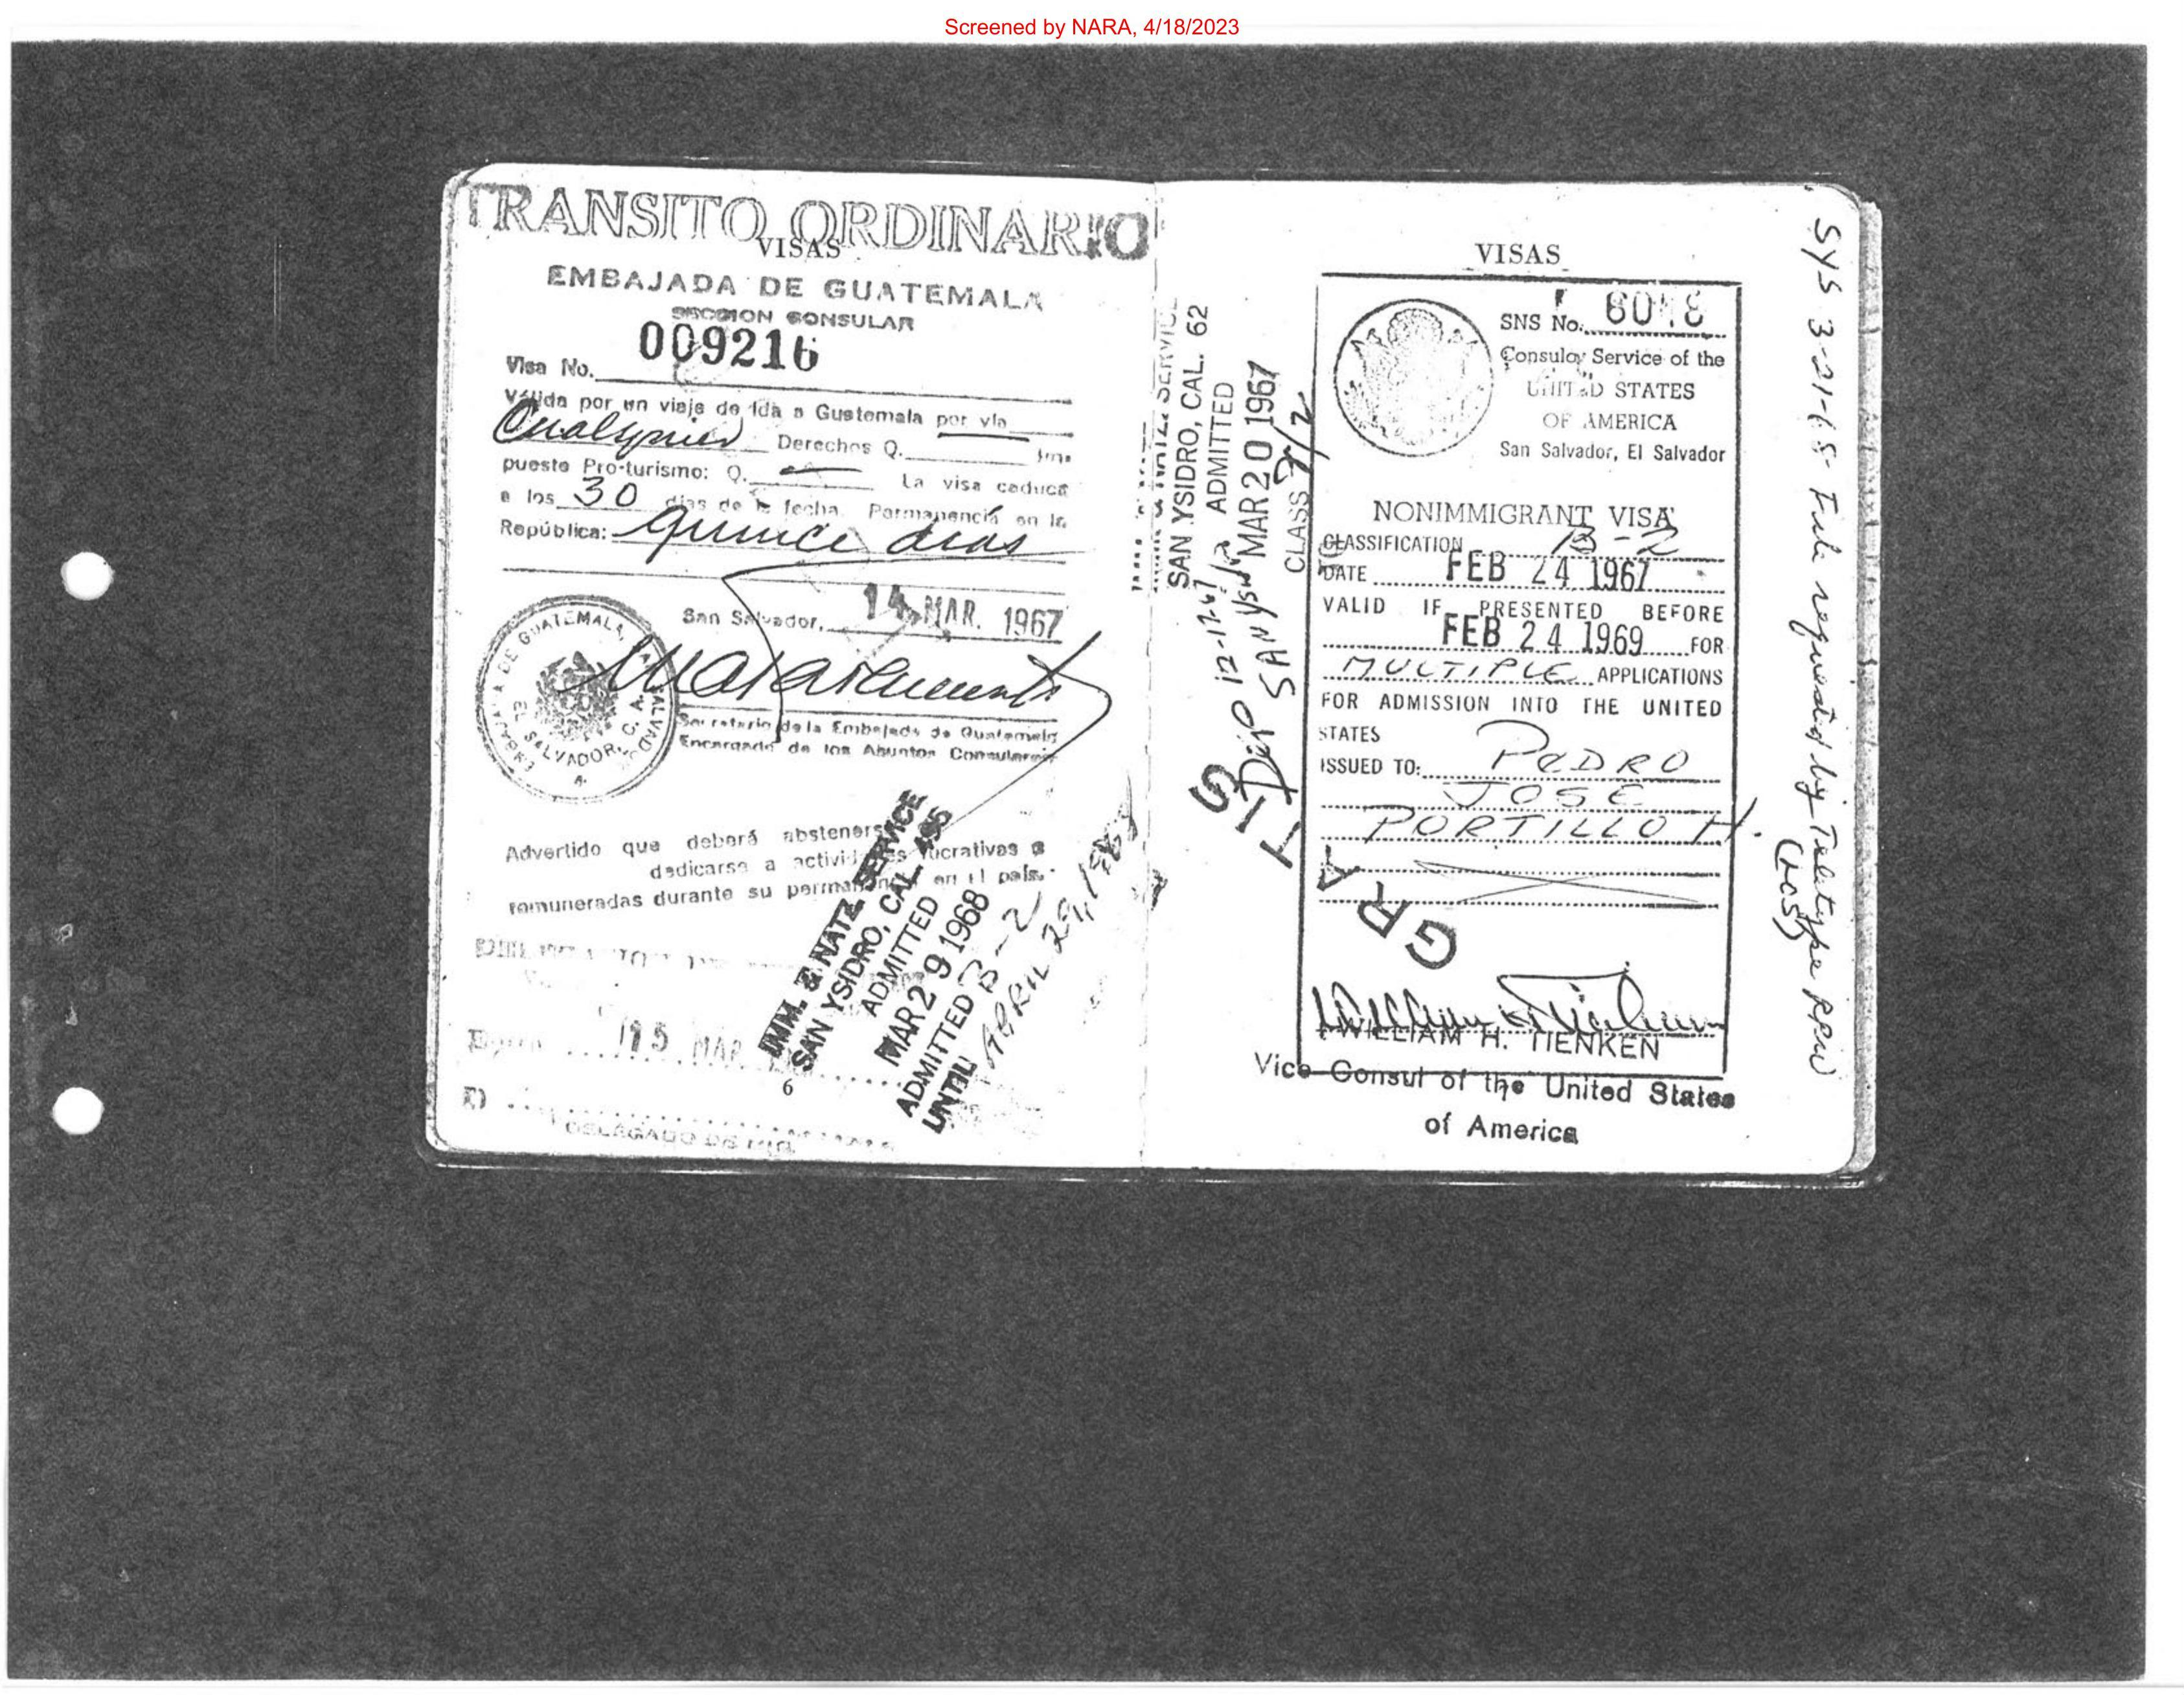 Screened by NARA, 4/18/2023
TRANSITO ORDINARIO
VISAS
EMBAJADA DE GUATEMALA
SECCION CONSULAR
Visa No. 009216
Válida por un viaje de ida a Guatemala por vía
Cualquier Derechos Q. Im-
puesto Pro-turismo: Q. La visa caduca
a los 30 días de la fecha. Permanencia en la
República: quince dias
San Salvador, 14 MAR. 1967
EMBAJADA DE GUATEMALA
EL SALVADOR, C. A.
Secretario de la Embajada de Guatemala
Encargado de los Asuntos Consulares
Advertido que deberá abstenerse
dedicarse a actividades lucrativas o
remuneradas durante su permanencia en el país.
15 MAR
DELEGADO DE
6
IMM. & NATZ. SERVICE
SAN YSIDRO, CAL. 495
ADMITTED
MAR 29 1968
ADMITTED B-2
UNTIL APRIL 29, 1968
& NATZ. SERVICE
SAN YSIDRO, CAL. 62
ADMITTED
MAR 20 1967
CLASS
12-17-67
SAN YS
GRATIS
VISAS
SNS No.
Consular Service of the
UNITED STATES
OF AMERICA
San Salvador, El Salvador
NONIMMIGRANT VISA
CLASSIFICATION B-2
DATE FEB 24 1967
VALID IF PRESENTED BEFORE
FEB 24 1969 FOR
MULTIPLE APPLICATIONS
FOR ADMISSION INTO THE UNITED
STATES
ISSUED TO: PEDRO
JOSE
PORTILLO H.
WILLIAM H. TIENKEN
Vice Consul of the United States
of America
SYS 3-21-68 File requested by Teletype RPW
(LOS)